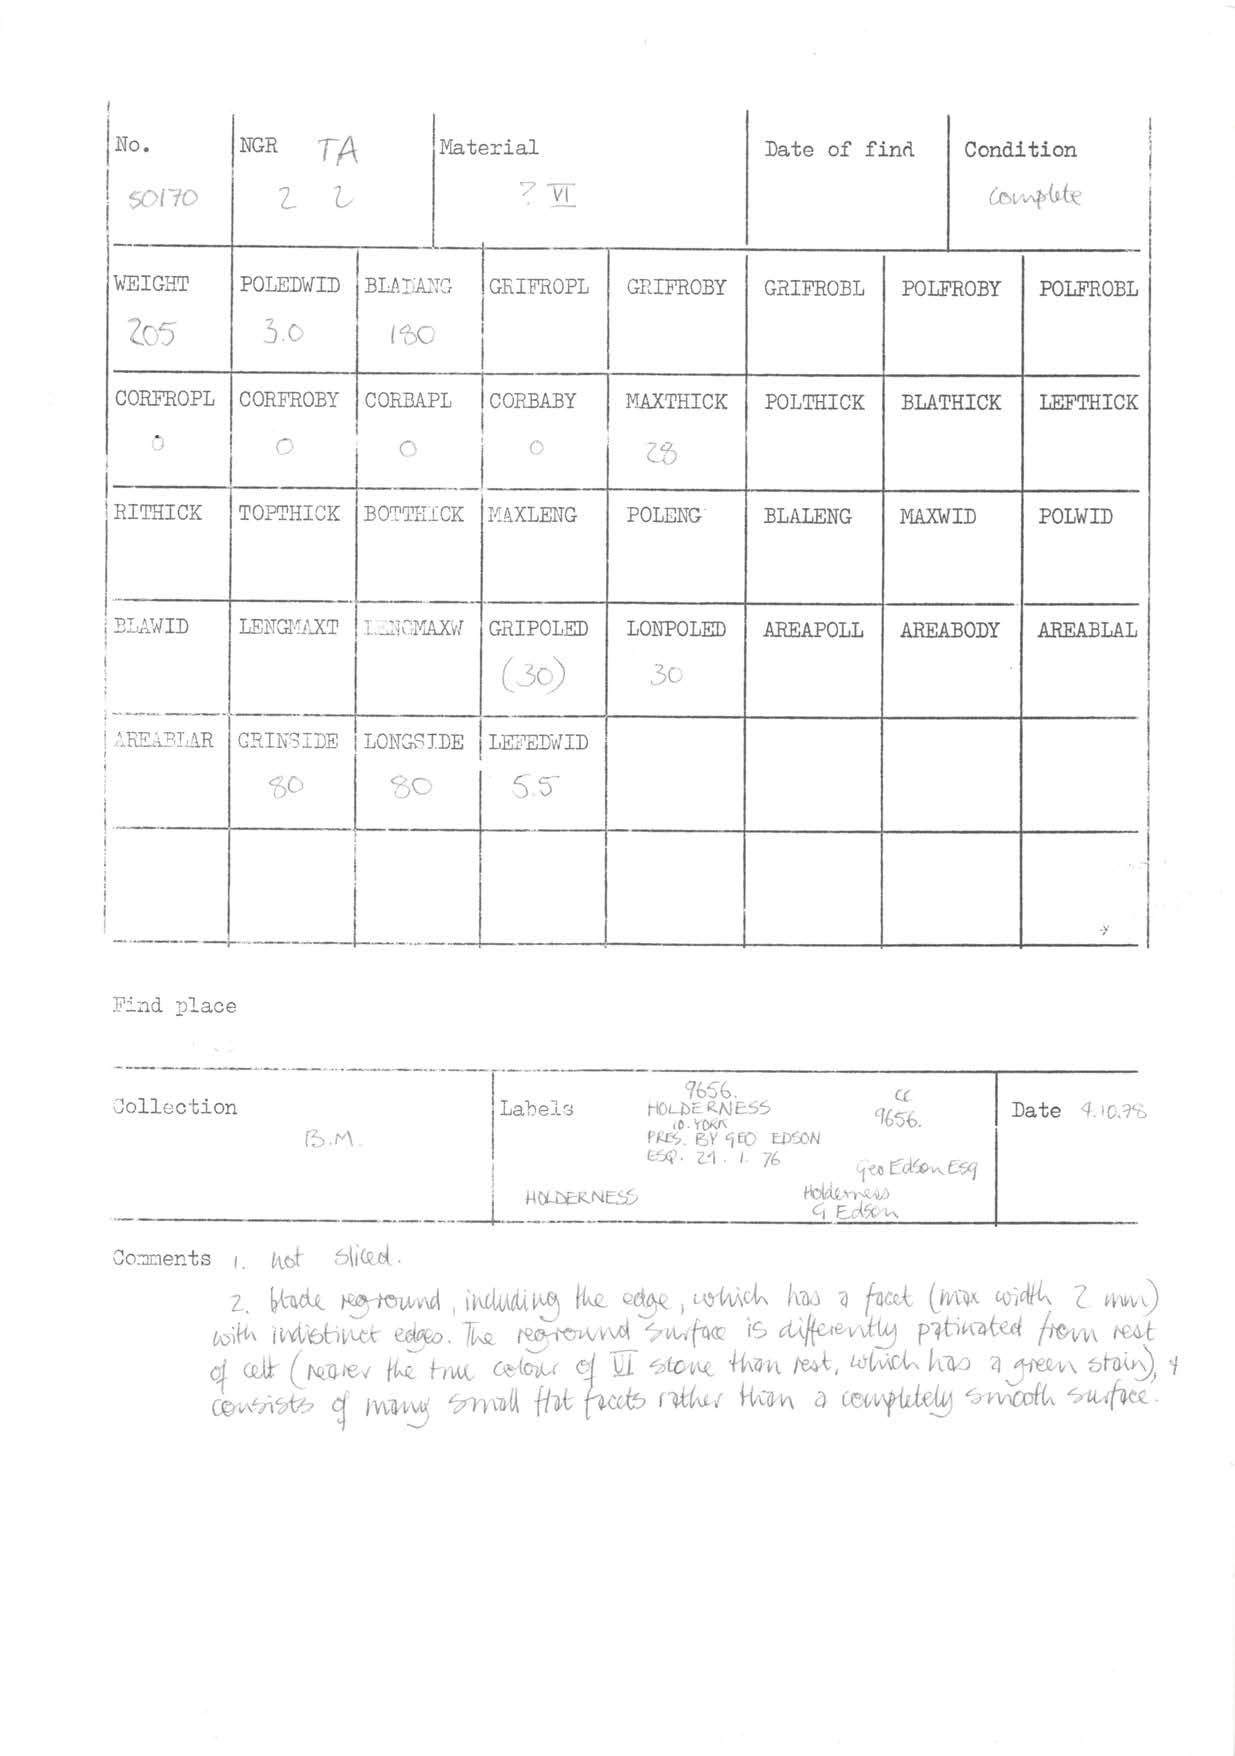 No. NGR TA Material Date of find Condition
50170 2 2 ? VI complete
WEIGHT POLEDWID BLADANG GRIFROPL GRIFROBY GRIFROBL POLFROBY POLFROBL
205 3.0 180
CORFROPL CORFROBY CORBAPL CORBABY MAXTHICK POLTHICK BLATHICK LEFTHICK
0 0 0 0 28
RITHICK TOPTHICK BOTTHICK MAXLENG POLENG BLALENG MAXWID POLWID
BLAWID LENGMAXT LENGMAXW GRIPOLED LONPOLED AREAPOLL AREABODY AREABLAL
(30) 30
AREABLAR GRINSIDE LONGSIDE LEFEDWID
80 80 5.5
Find place
Collection
B.M.
Labels
9656.
HOLDERNESS
YORK
PRES. BY GEO EDSON
ESQ. 21. 1. 76
HOLDERNESS
9656.
Geo Edson Esq
Holderness
G Edson
Date 4.10.78
Comments 1. not sliced.
2. blade reground, including the edge, which has a facet (max width 2 mm)
with indistinct edges. The reground surface is differently patinated from rest
of celt (nearer the true colour of VI stone than rest, which has a green stain), +
consists of many small flat facets rather than a completely smooth surface.